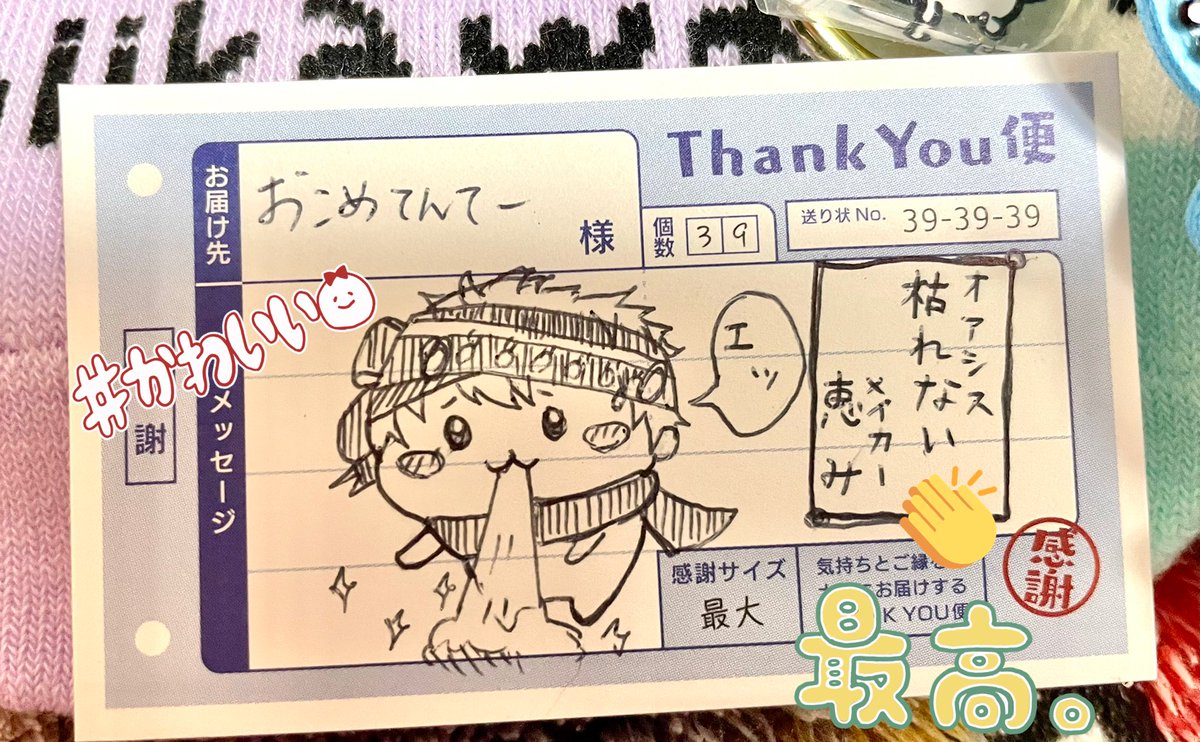 iikaw
Thank You便
お届け先
おこめてんてー
様
個数
39
送り状 No. 39-39-39
メッセージ
#かわいい
謝
エッ
オアシス
枯れない
メイカー
恵み
感謝サイズ
最大
気持ちとご縁を
お届けする
K YOU便
感謝
最高。